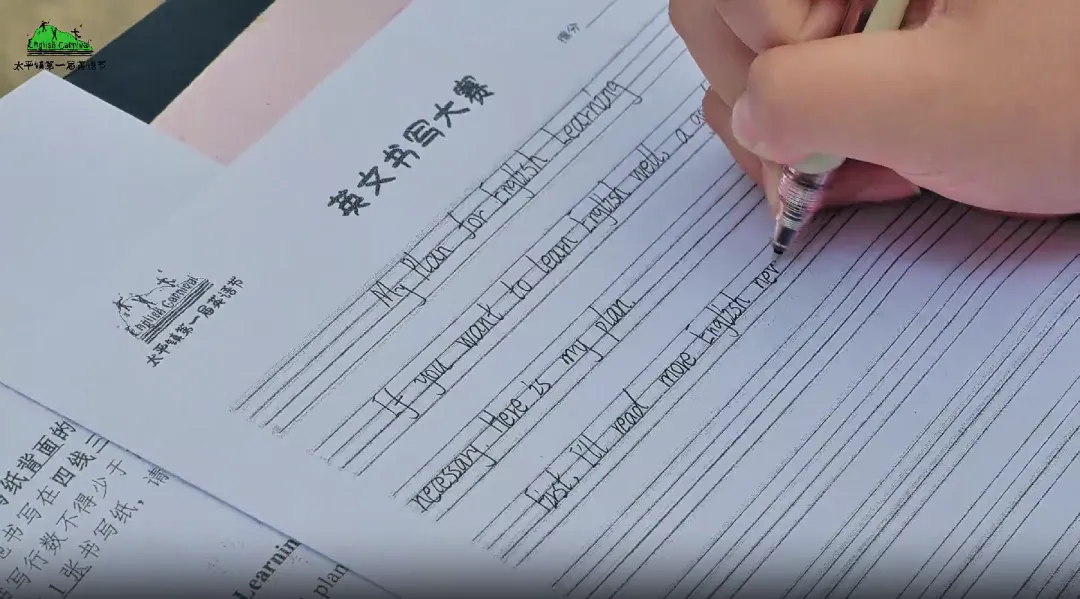 English Carnival
太平镇第一届英语节
得分
英文书写大赛
My Plan for English Learning
If you want to learn English well, a
necessary. Here is my plan.
First, I'll read more English
English Carnival
太平镇第一届英语节
纸背面的
书写在四线三
写行数不得少于
1 张书写纸，请
Learnin
plan